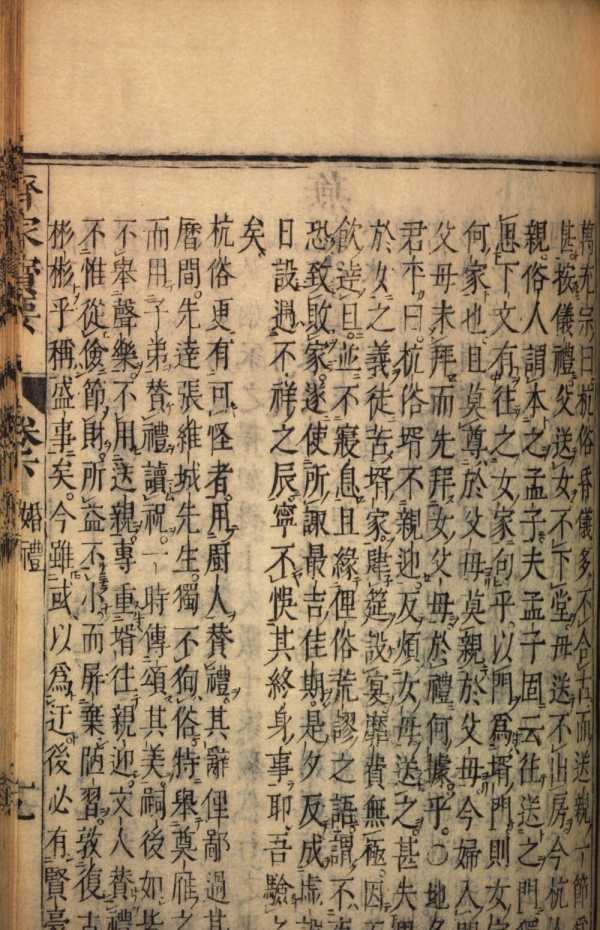 萬充宗曰。杭俗昏儀多不合古。而送親一節爲
甚。按儀禮。父送女不下堂。母送不出房。今杭人
親。俗人謂本之孟子。夫孟子固云往送之門。
思下文有往之女家句乎。以門爲壻門。則女
何家也。且莫尊於父母。莫親於父母。今婦入門
父母未拜。而先拜女父母。於禮何據乎。〇地
君平曰。杭俗壻不親迎。反煩女母送之。甚失男
於女之義。徒苦壻家。肆筵設宴。靡費無極。因
飲達旦。並不寢息。且緣俚俗荒謬之語。謂不
恐致敗家。遂使所諏最吉佳期。是夕反成虛
日設過不祥之辰。寧不悞其終身事耶。吾驗之
矣。
杭俗更有可怪者。用厨人贊禮。其辭俚鄙過甚
曆間。先達張維城先生。獨不狥俗。特舉奠雁之
而用子弟贊禮讀祝。一時傳頌其美。嗣後如
不舉聲樂。不用送親。專重壻往親迎。文人贊禮
不惟從儉節財。所益不小。而屏棄陋習。敦復古
彬彬乎稱盛事矣。今雖或以爲迂。後必有賢豪
齊家寶要 卷六 婚禮 十九